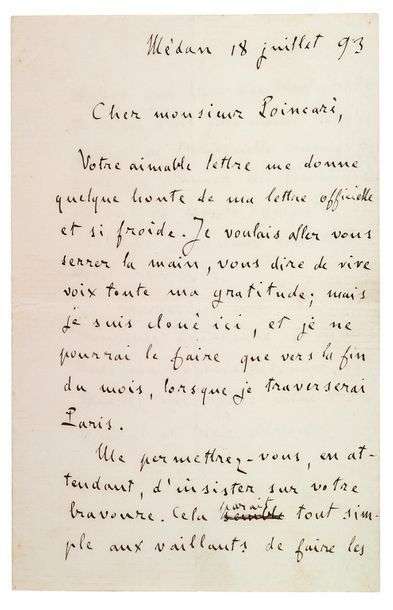 Médan 18 juillet 93
Cher monsieur Poincaré,
Votre aimable lettre me donne
quelque honte de ma lettre officielle
et si froide. Je voulais aller vous
serrer la main, vous dire de vive
voix toute ma gratitude; mais
je suis cloué ici, et je ne
pourrai le faire que vers la fin
du mois, lorsque je traverserai
Paris.
Me permettrez-vous, en at-
tendant, d'insister sur votre
bravoure. Cela semble paraît tout sim-
ple aux vaillants de faire les